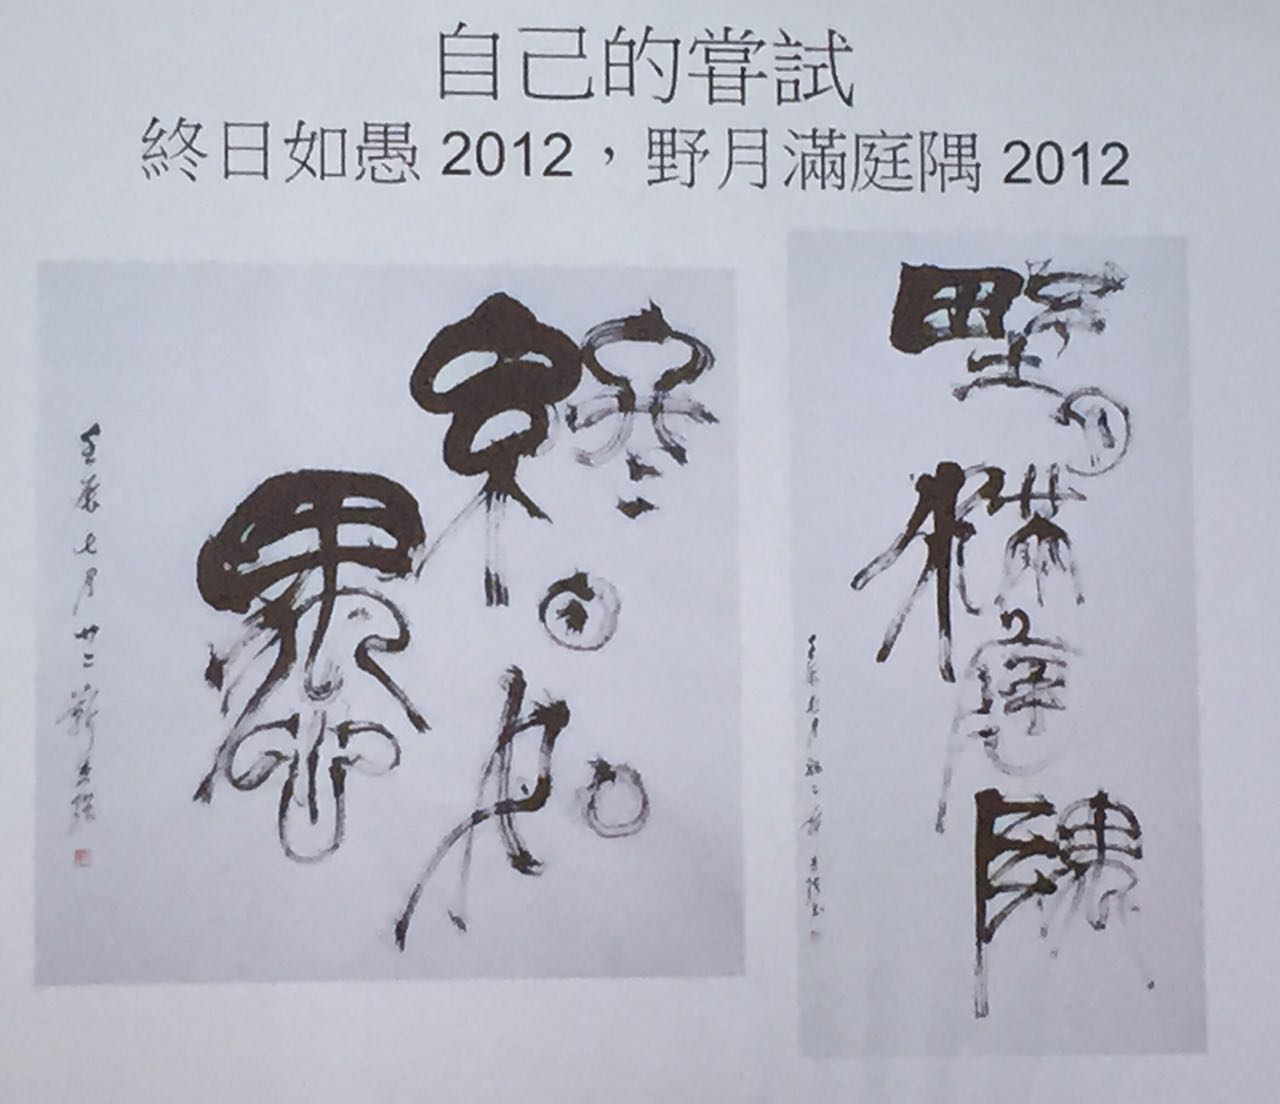 自己的嘗試
終日如愚 2012，野月滿庭隅 2012
終日如
愚
壬辰七月廿二
野月滿庭隅
壬辰